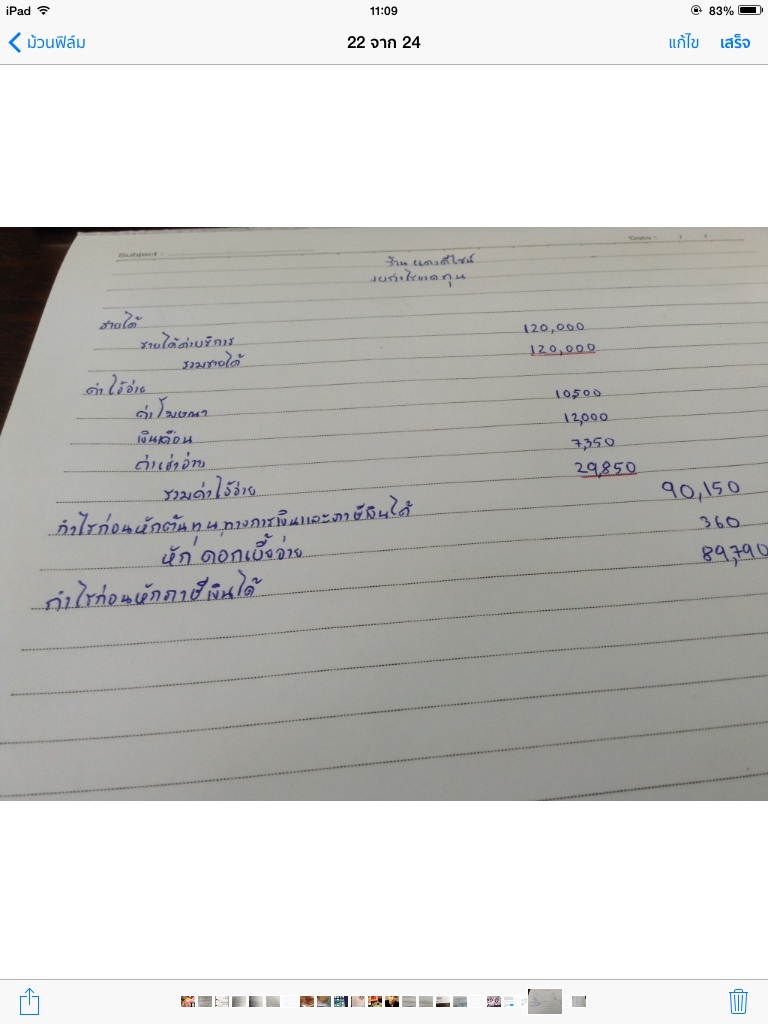 iPad
11:09
83%
ม้วนฟิล์ม
22 จาก 24
แก้ไข
เสร็จ
Subject :
Date : / /
ร้าน แดงดีไซน์
งบกำไรขาดทุน
รายได้
รายได้ค่าบริการ 120,000
รวมรายได้ 120,000
ค่าใช้จ่าย
ค่าโฆษณา 10,500
เงินเดือน 12,000
ค่าเช่าจ่าย 7,350
รวมค่าใช้จ่าย 29,850
กำไรก่อนหักต้นทุนทางการเงินและภาษีเงินได้ 90,150
หัก ดอกเบี้ยจ่าย 360
กำไรก่อนหักภาษีเงินได้ 89,790